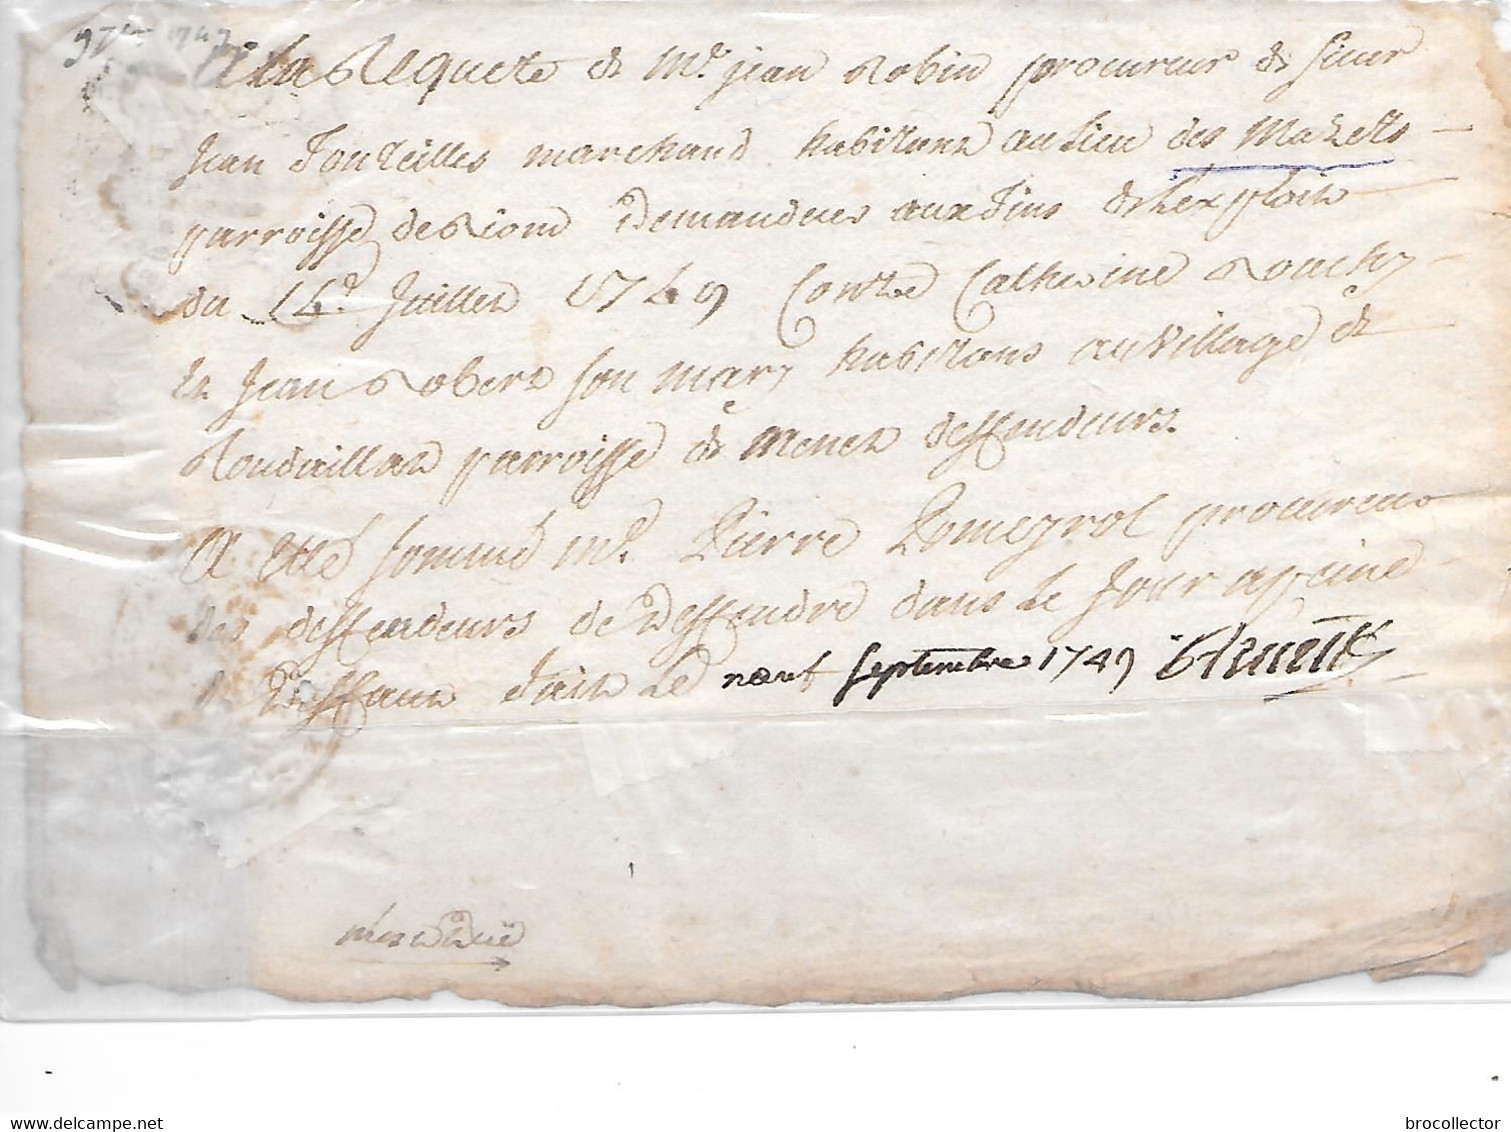 9 7bre 1749
A la Requete de Me jean Robin procureur de sieur
Jean Fonteilles marchand habitant au lieu des Mazets
parroisse de Riom Demandeur aux fins de Lexploit
du 14e Juillet 1749 Contre Catherine Rouchy
et Jean Robert son mary habitans au village de
Roudaillat parroisse de Menet deffendeurs.
A eté sommé Me Pierre Pomeyrol procureur
des deffendeurs de Deffendre dans Le Jour a peine
de Deffaut fait Le neuf septembre 1749
www.delcampe.net
brocollector